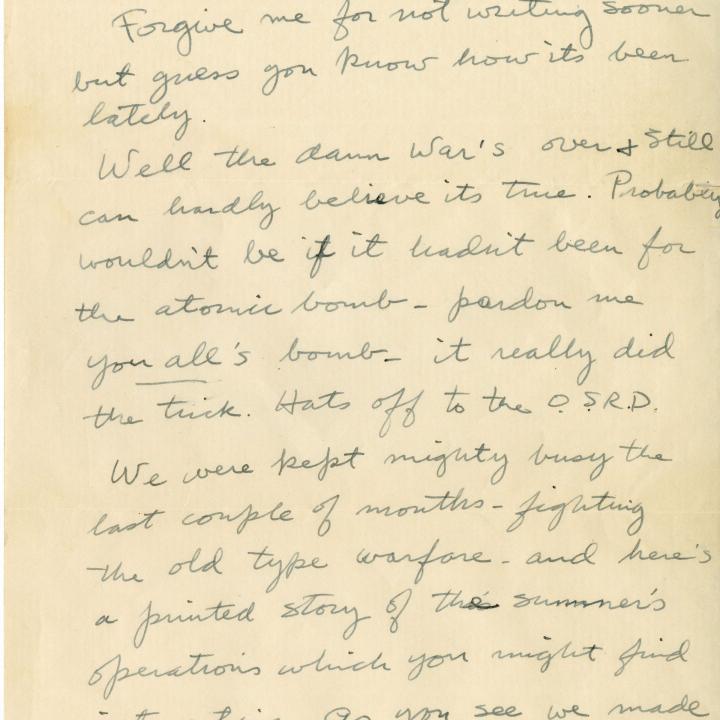 Forgive me for not writing sooner
but guess you know how its been
lately.
Well the damn War's over & still
can hardly believe its true. Probably
wouldn't be if it hadn't been for
the atomic bomb - pardon me
you all's bomb - it really did
the trick. Hats off to the O.S.R.D.
We were kept mighty busy the
last couple of months - fighting
the old type warfare - and here's
a printed story of the summer's
operations which you might find
interesting. As you see we made